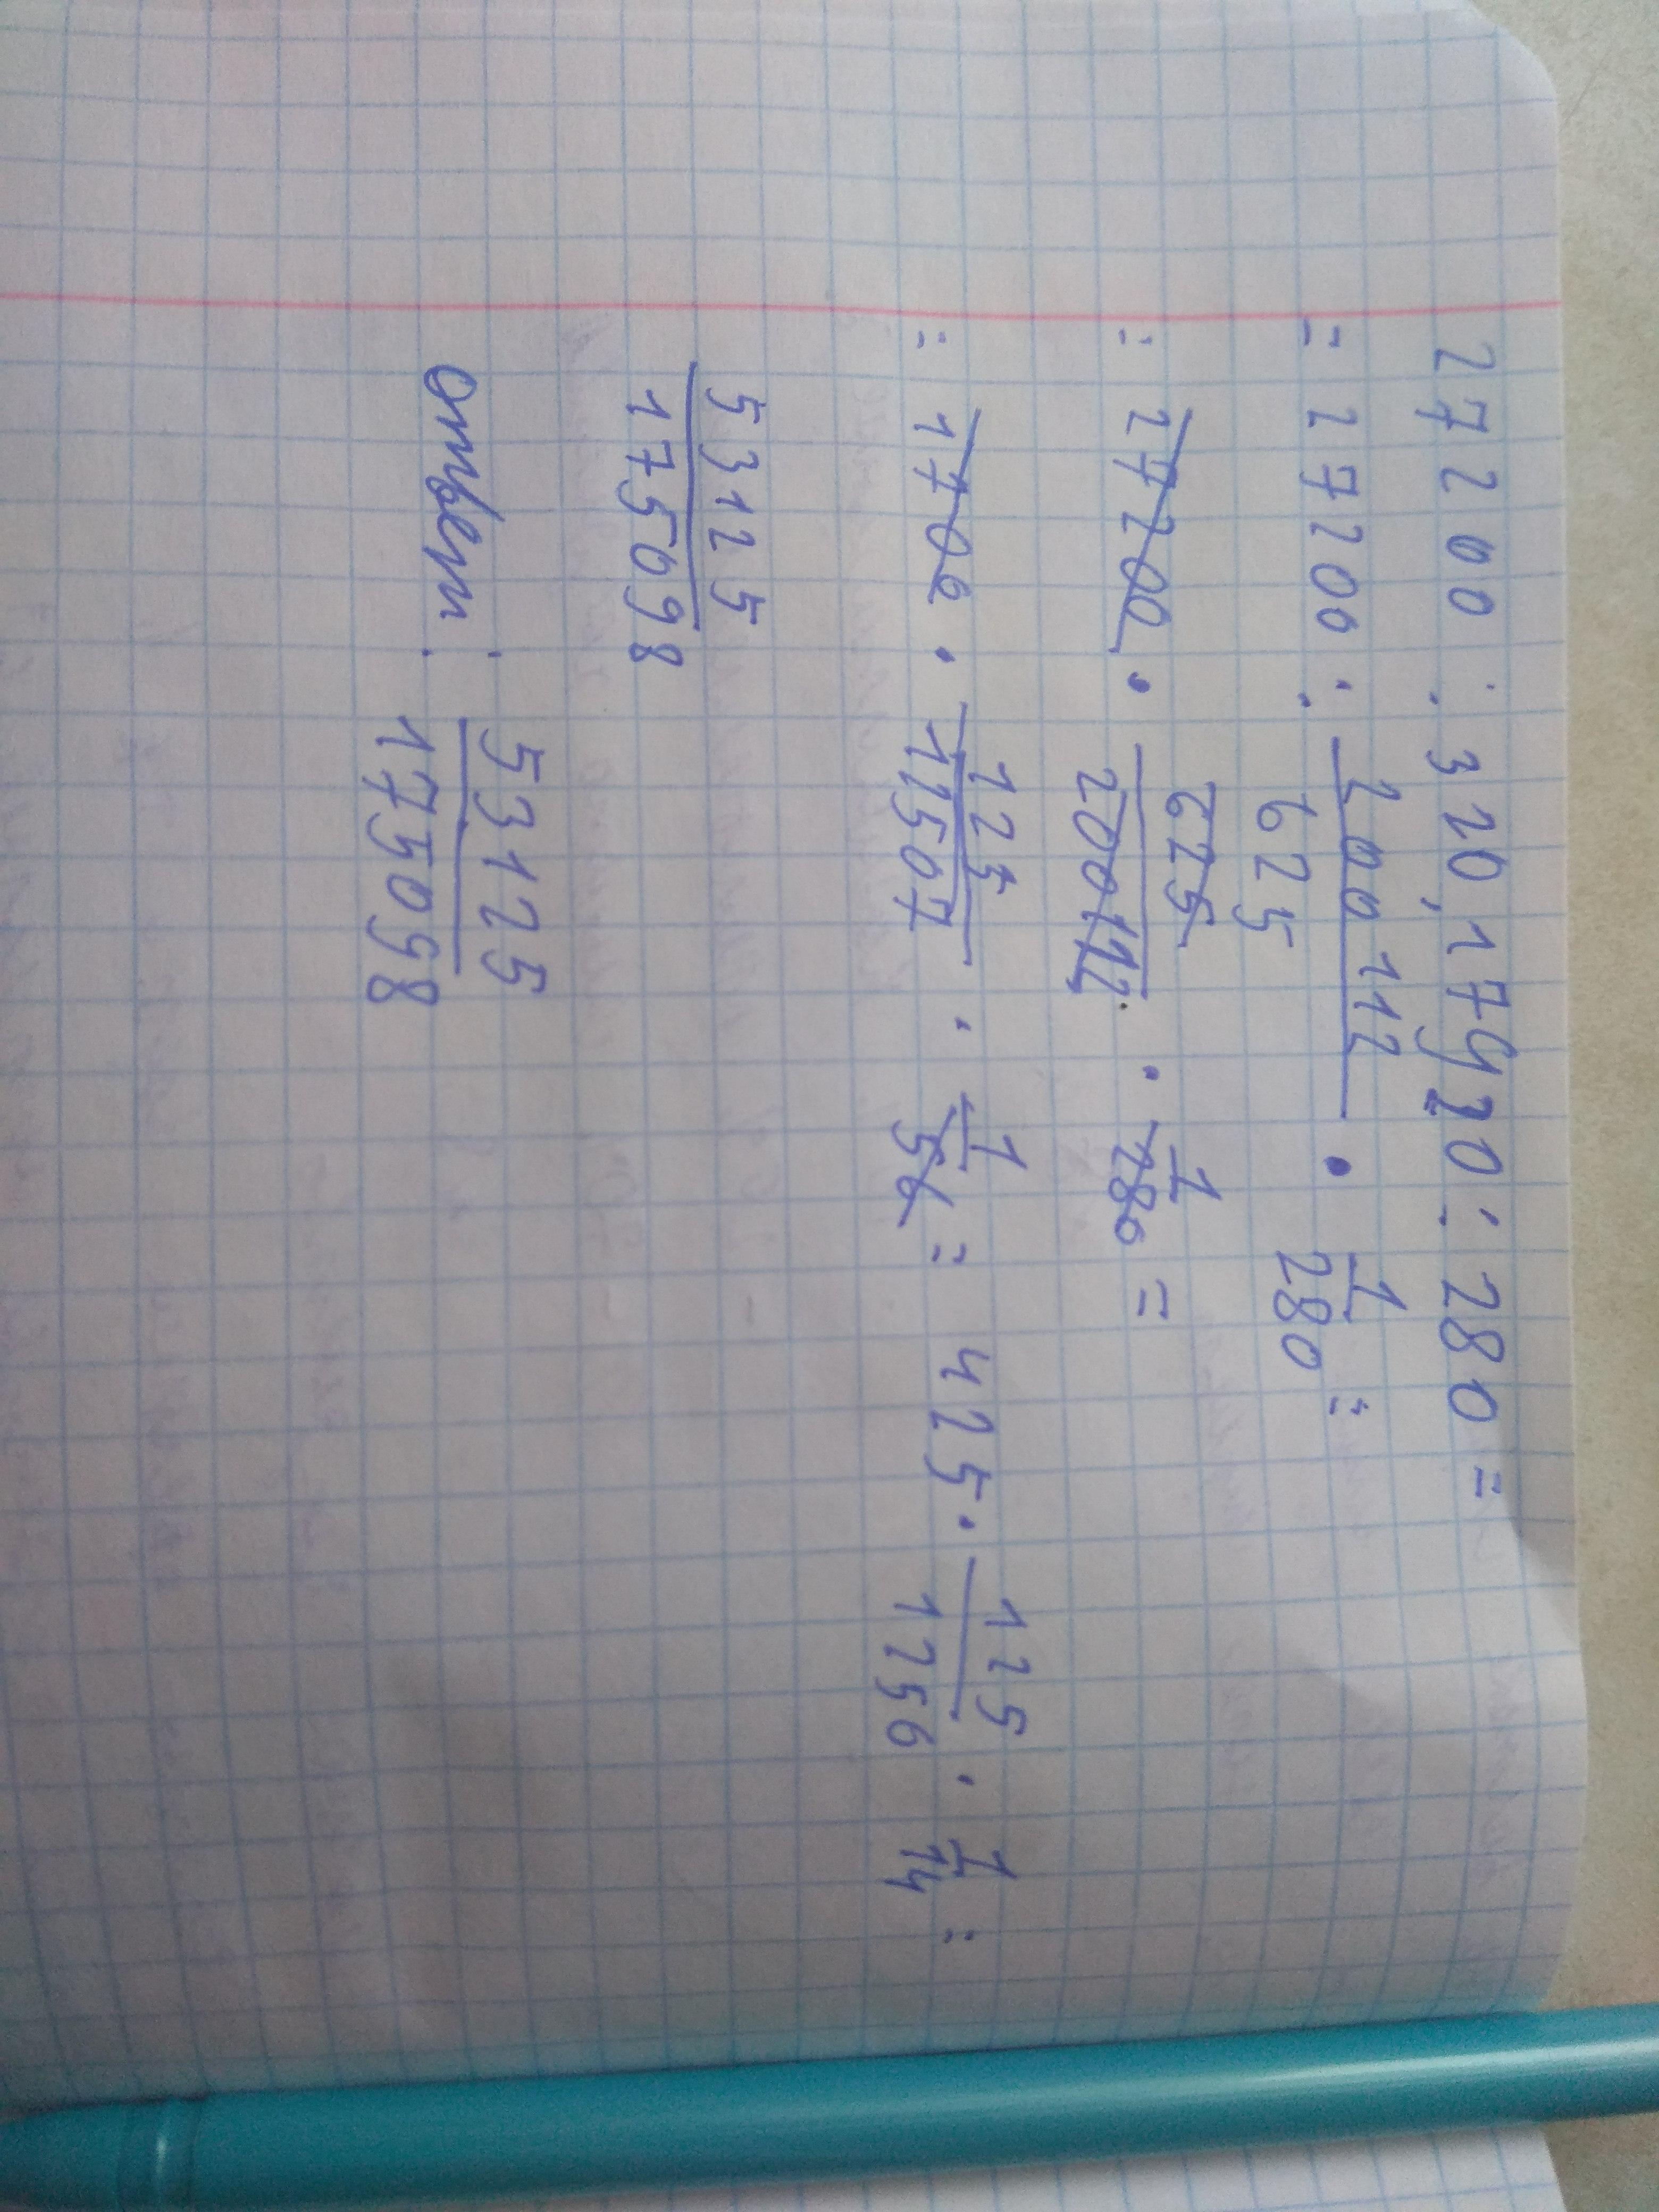 27200 : 320,17920 : 280 =
= 27200 : 200112/625 · 1/280 =
= 27200 · 625/200112 · 1/280 =
= 1700 · 125/12507 · 1/56 = 425 · 125/1256 · 1/14 =
53125/175098
ответ: 53125/175098